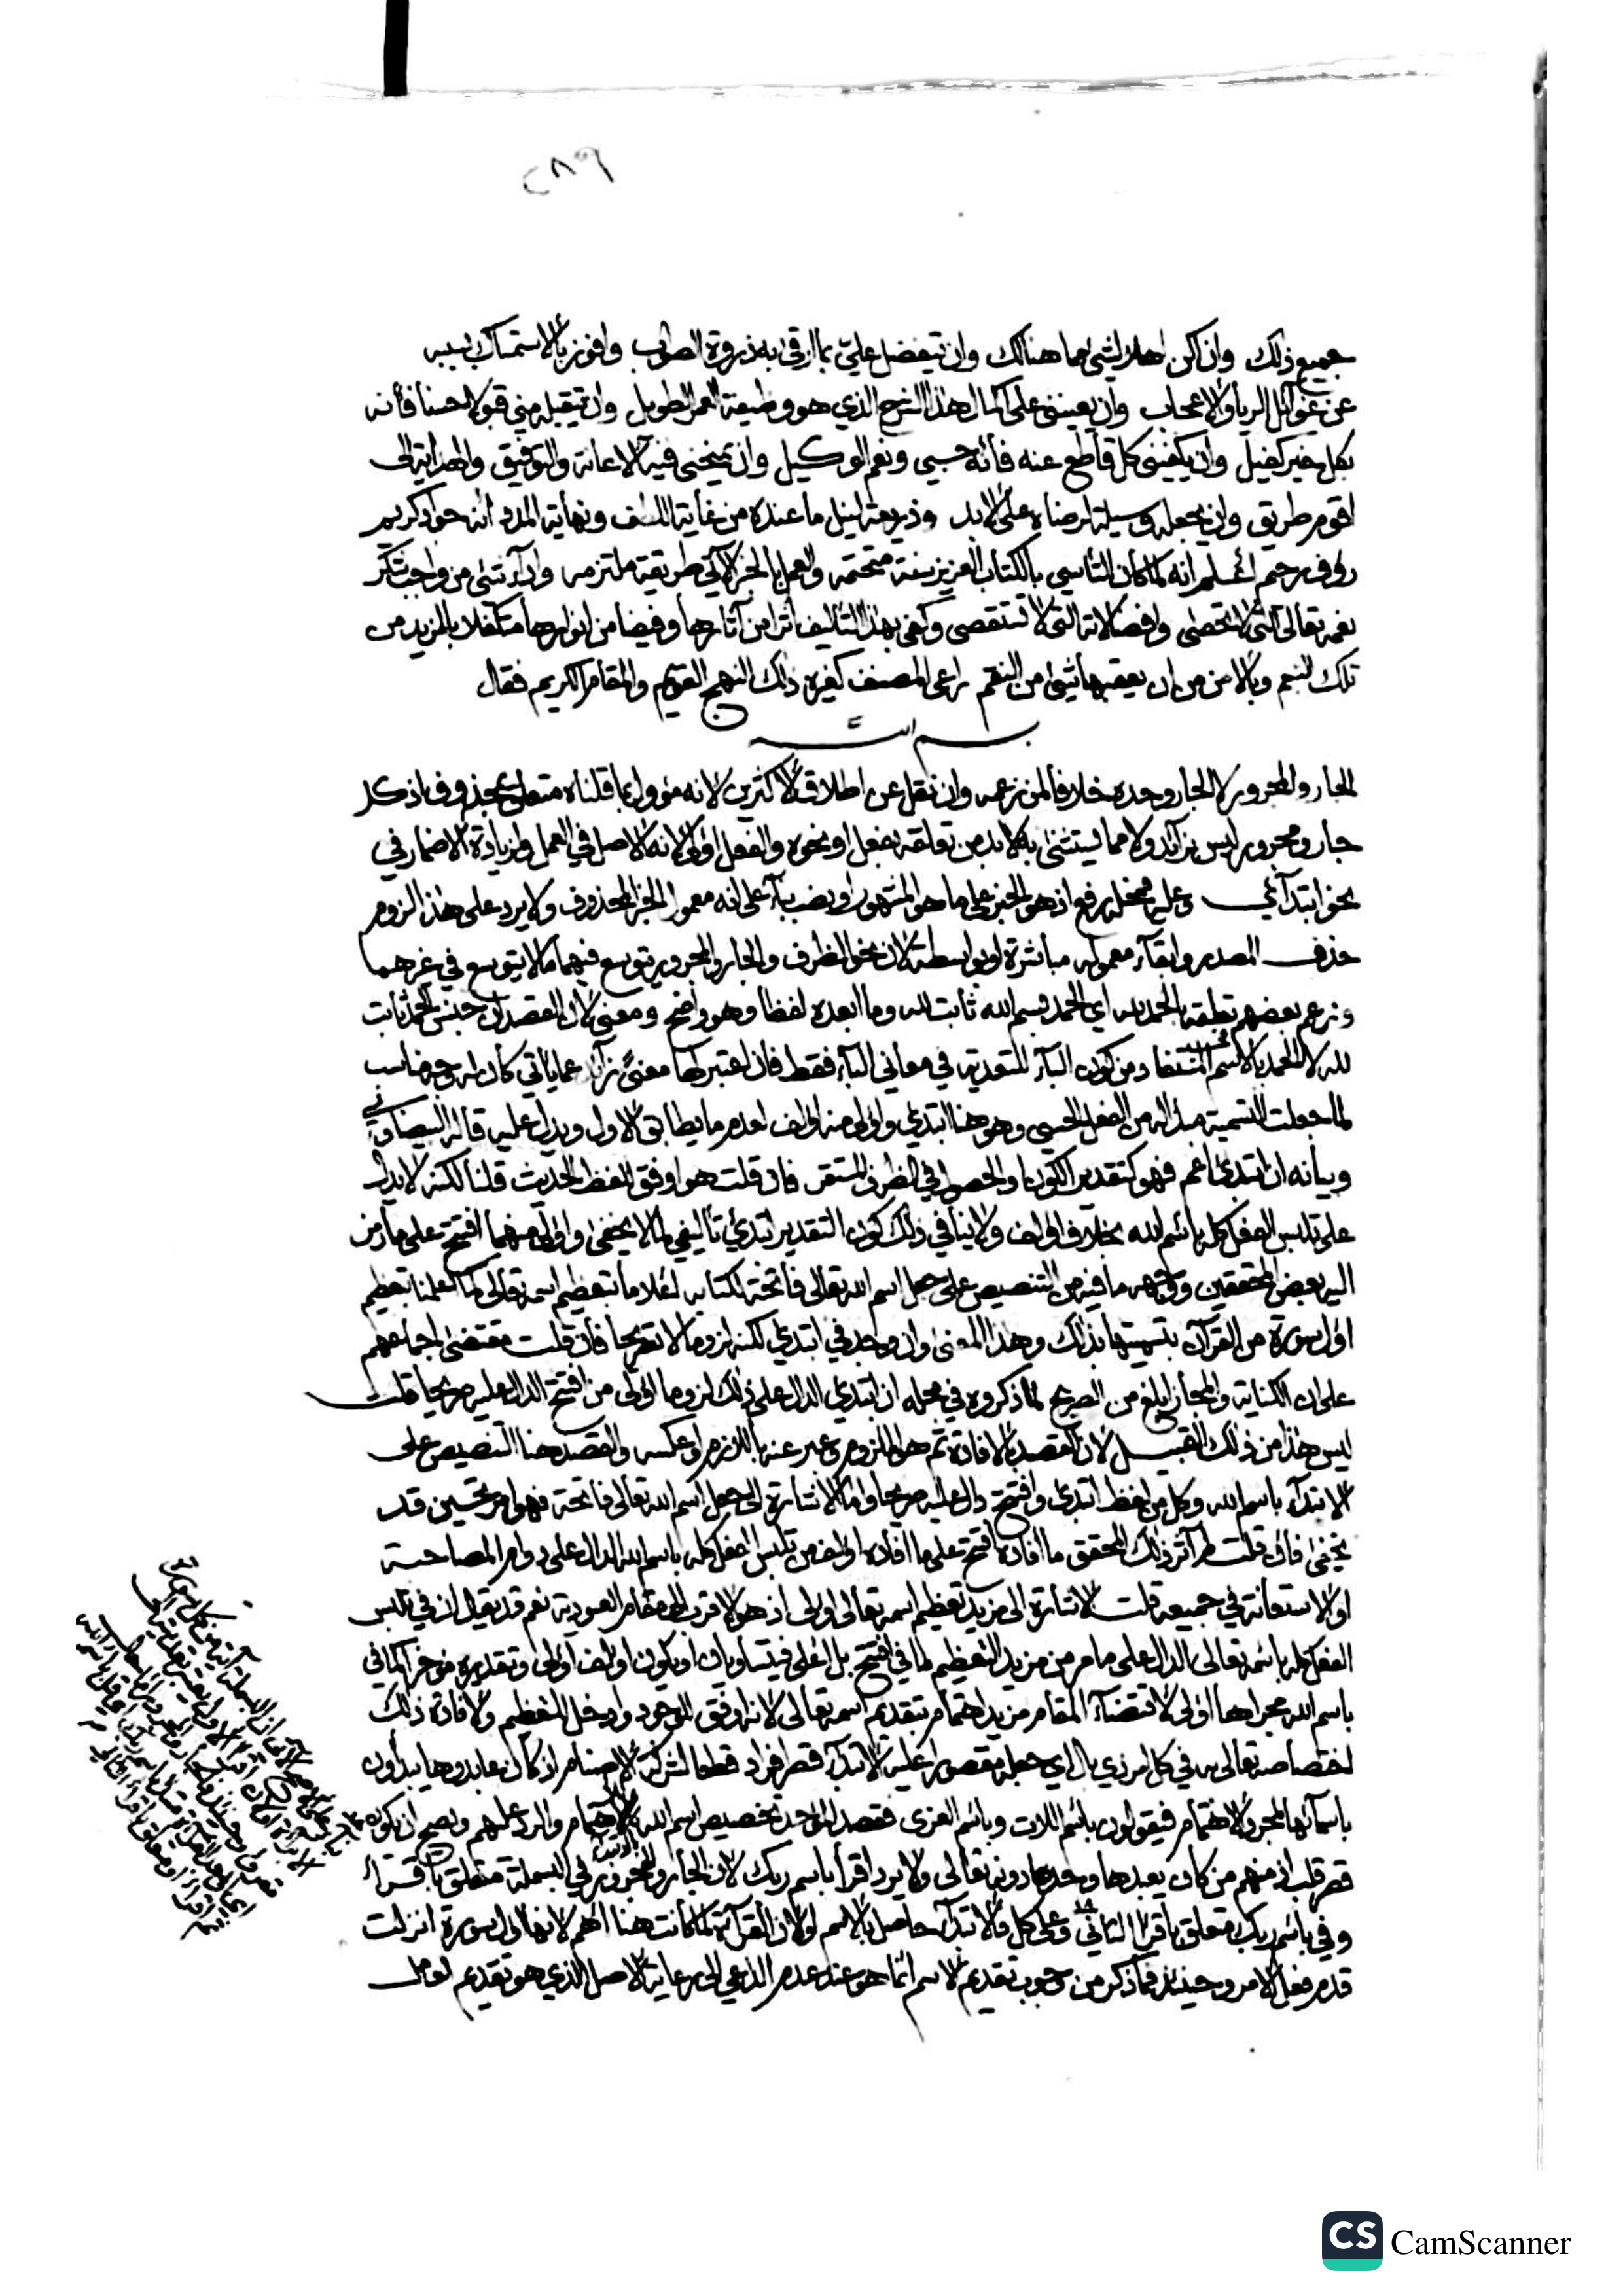 ٢٨٩
جميع ذلك وان لم اكن اهلا لشئ مما هنالك وان يتفضل علي بما ارقى به ذروة الصواب وافوز بالاستمساك بسببه
عن غوائل الرياء والاعجاب وان يعينني على اكمال هذا الشرح الذي هو وظيفة العمر الطويل وان يتقبله مني قبولا حسنا فانه
بكل خير كفيل وان يكفيني كل قاطع عنه فانه حسبي ونعم الوكيل وان يمنحني فيه الاعانة والتوفيق والهداية الى
اقوم طريق وان يجعله وسيلة لرضاه على الابد وذريعة لنيل ما عنده من غاية اللطف ونهاية المدد انه جواد كريم
رؤف رحيم اعلم انه لما كان التأسي بالكتاب العزيز سنة متحتمه والعمل بالخبر الآتي طريقة ملتزمه واداء شئ من واجب شكر
نعمه تعالى التي لا تحصى وافضالاته التي لا تستقصى وكفى بهذا التأليف اثرا من آثارها وفيضا من انوارها متكفلا بالمزيد من
تلك النعم وبالامن من ان يعقبها شئ من النقم راعى المصنف كغيره ذلك النهج القويم والمقام الكريم فقال
بسم الله
الجار والمجرور لا الجار وحده خلافا لمن زعمه وان نقل عن اطلاق الاكثرين لانه مؤول بما قلناه متعلق بمحذوف اذ كل
جار ومجرور ليس بزائد ولا مما يستثنى به لا بد من تعلقه بفعل او نحوه والفعل اولى لانه الاصل في العمل ولزيادة الاضمار في
نحو ابتدائي وعليه فمحله رفع اذ هو الخبر على ما هو المشهور او نصب بناء على انه معمول الخبر المحذوف ولا يرد على هذا لزوم
حذف المصدر وابقاء معموله مباشرة او بواسطة لان نحو الظرف والجار والمجرور يتوسع فيهما ما لا يتوسع في غيرهما
وزعم بعضهم تعلقه بالحمد لله اي الحمد بسم الله ثابت لله وما بعده لفظا وهو واضح ومعنى لان القصد ان جنس الحمد ثابت
لله لا الحمد بالاسم ومن كون الباء للتعدية في معاني الباء فقط فان اعتبر لها معنى زائد عما يأتي كان له وجه مناسب
لما جعلت التسمية مبدأ له من الفعل الحسي وهو هنا ابتدئ واولى منه اولف لعدم ما يطابق الاول ويدل عليه قاله البيضاوي
وبيانه ان ابتدئ اعم فهو كتقدير الكون او الحصول في الظرف المستقر فان قلت هو اوفق للفظ الحديث قلنا لكنه لا يدل
على تلبس الفعل كله باسم الله بخلاف اولف ولا ينافي ذلك كون التقدير ابتدئ تأليفي كما لا يخفى واولى منهما افتتح على ما رمز
اليه بعض المحققين ووجهه ما فيه من التنصيص على جعل اسم الله تعالى فاتحة لكتابه اعلاما بتعظيم اسمه تعالى كما اعلمنا بتعظيم
اول سورة من القرآن بتسميتها بذلك وهذا المعنى وان وجد في ابتدئ لكنه لزوما لا تصريحا فان قلت مقتضى اجماعهم
على ان الكناية والمجاز ابلغ من الصريح لما ذكروه في محله ان ابتدئ الدال على ذلك لزوما اولى من افتتح الدال عليه صريحا قلت
ليس هذا من ذلك القبيل لان القصد بالافادة ثم هو الملزوم وعبر عنه باللازم او عكسه والقصد هنا التنصيص على
الابتداء باسم الله وكل من لفظ ابتدئ وافتتح دال عليه صريحا واما الاشارة الى جعل اسم الله تعالى فاتحة فهو امر تحسين قد
يخفى فان قلت لم آثر ذلك المحقق ما افاده افتتح على ما افاده اولف من تلبس الفعل كله باسم الله الدال على دوام المصاحبة
او الاستعانة في جميعه قلت الاشارة الى مزيد تعظيم اسمه تعالى اولى اذ هو الاقرب الى مقام العبودية نعم قد يقال ان في تلبس
الفعل كله باسمه تعالى الدال على ما مر من مزيد التعظيم لما في افتتح بل اعلى فيتساويان او يكون اولف اولى وتقديره مؤخرا كما في
باسم الله مجراها اولى لاقتضاء المقام مزيد اهتمام بتقديم اسمه تعالى لانه اوفق للوجود وادخل للتعظيم ولافادة ذلك
اختصاصه تعالى به في كل امر ذي بال اي جعله مقصورا عليه الابتداء قصر افراد قطعا لشركة الاصنام اذ كان عابدوها يبدأون
باسمائها لمجرد الاهتمام فيقولون باسم اللات وباسم العزى فقصد الموحد تخصيص اسم الله بالاهتمام والرد عليهم ويصح ان يكون
قصر قلب اذ منهم من كان يعبدها وحدها دونه تعالى ولا يرد اقرأ باسم ربك لان الجار والمجرور في البسملة متعلق باقرأ
وفي باسم ربك متعلق باقرأ الثاني وعلى كل فالابتداء حاصل بالاسم اولا لان القرآءة لما كانت هنا اهم لانها اول سورة انزلت
قدم فعل الامر وحينئذ فما ذكر من وجوب تقديم الاسم انما هو عند عدم الداعي الى رعاية الاصل الذي هو تقديم العامل
CS CamScanner